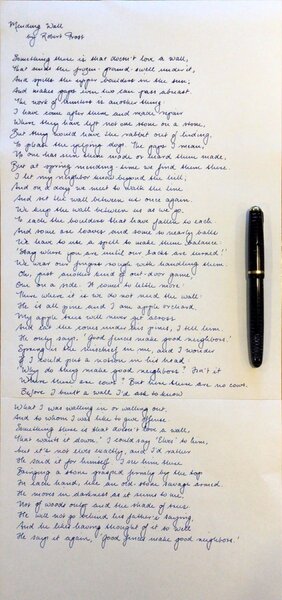 Mending Wall
by Robert Frost
Something there is that doesn't love a wall,
That sends the frozen-ground-swell under it,
And spills the upper boulders in the sun;
And makes gaps even two can pass abreast.
The work of hunters is another thing:
I have come after them and made repair
Where they have left not one stone on a stone,
But they would have the rabbit out of hiding,
To please the yelping dogs. The gaps I mean,
No one has seen them made or heard them made,
But at spring mending-time we find them there.
I let my neighbor know beyond the hill;
And on a day we meet to walk the line
And set the wall between us once again.
We keep the wall between us as we go.
To each the boulders that have fallen to each
And some are loaves and some so nearly balls
We have to use a spell to make them balance:
'Stay where you are until our backs are turned!'
We wear our fingers rough with handling them.
Oh, just another kind of out-door game,
One on a side. It comes to little more:
There where it is we do not need the wall:
He is all pine and I am apple orchard.
My apple trees will never get across
And eat the cones under his pines, I tell him.
He only says, 'Good fences make good neighbors.'
Spring is the mischief in me, and I wonder
If I could put a notion in his head:
'Why do they make good neighbors? Isn't it
Where there are cows? But here there are no cows.
Before I built a wall I'd ask to know
What I was walling in or walling out,
And to whom I was like to give offense.
Something there is that doesn't love a wall,
That wants it down.' I could say 'Elves' to him,
but it's not elves exactly, and I'd rather
He said it for himself. I see him there
Bringing a stone grasped firmly by the top
In each hand, like an old-stone savage armed.
He moves in darkness as it seems to me,
Not of woods only and the shade of trees.
He will not go behind his father's saying,
And he likes having thought of it so well
He says it again, 'Good fences make good neighbors.'